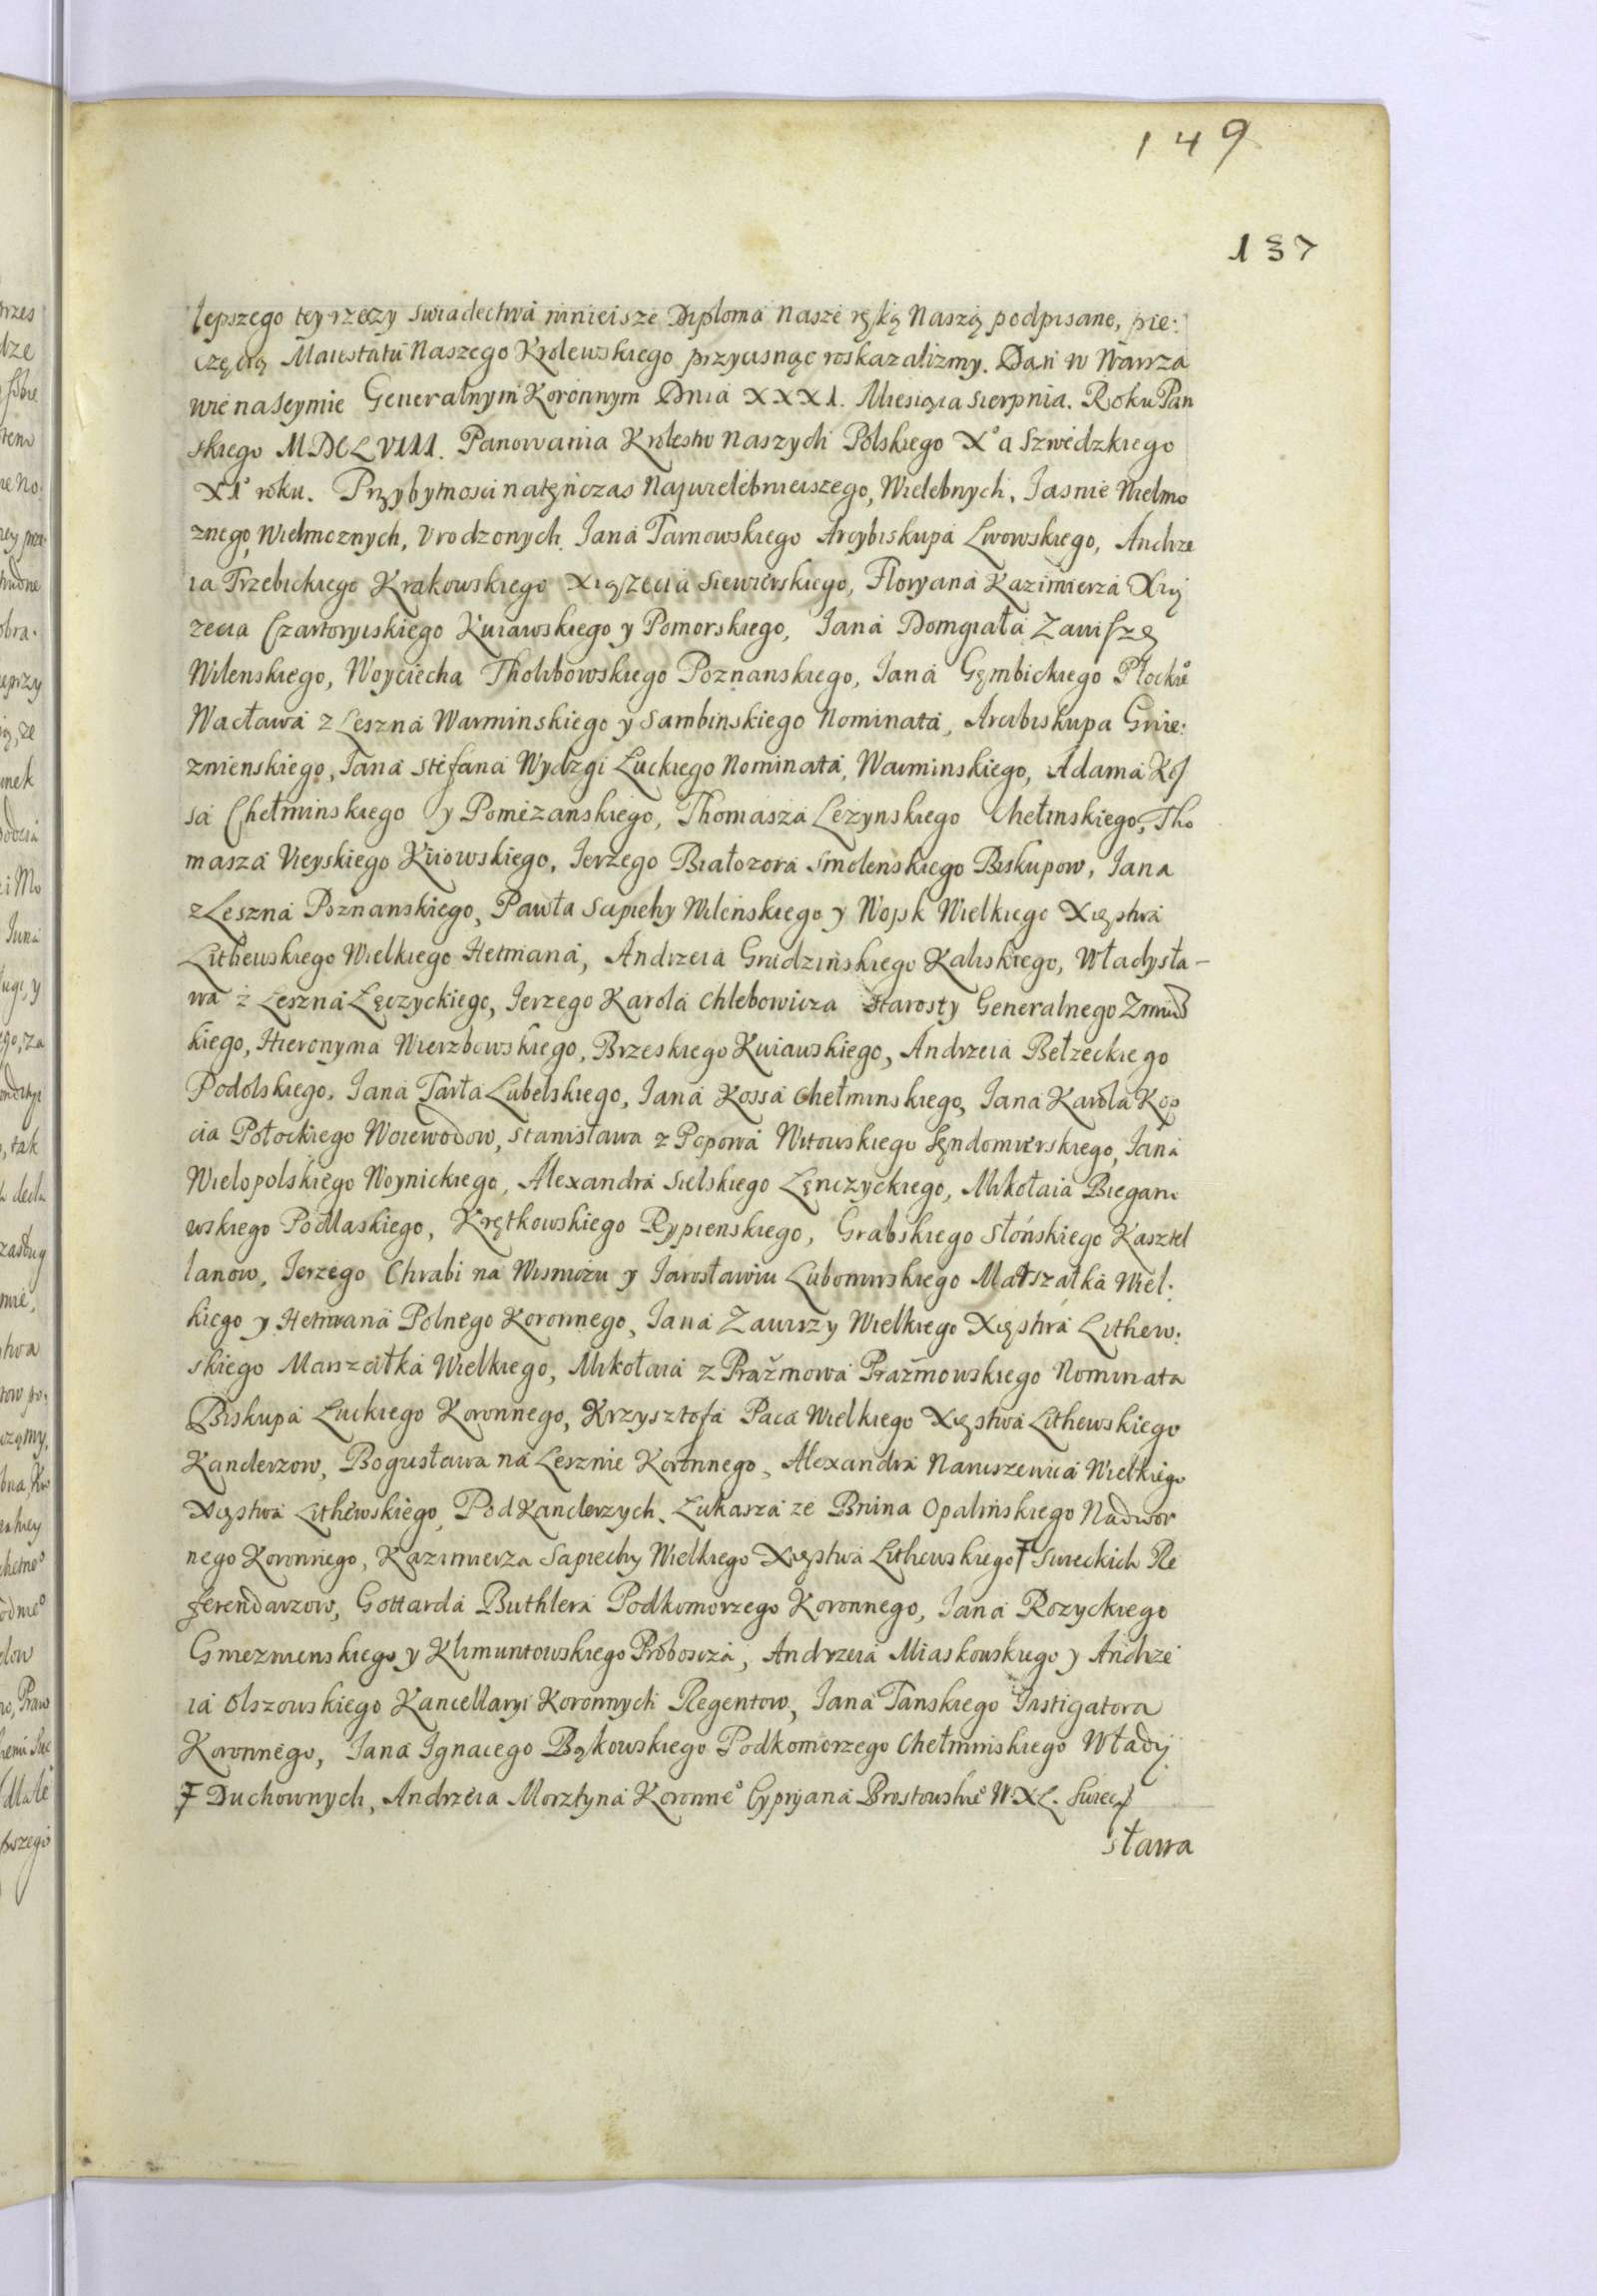 149
137
lepszego tey rzeczy swiadectwá ninieisze Diploma Nasze ręką Naszą podpisane, pie:
częcią Maiestatu Naszego Krolewskiego przycisnąc roskazalizmy. Dan w Warsza
wie na Seymie Generalnym Koronnym Dnia XXXI. Miesiąca Sierpnia. Roku Pan
skiego MDCLVIII. Panowania Krolestw Naszych Polskiego X° a Szwedzkiego
XI° roku. Przybytnosci natenczas Najwielebnieiszego, Wielebnych, Jasnie Wielmo
znego, Wielmoznych, Vrodzonych. Jana Tarnowskiego Arcybiskupa Lwowskiego, Andrze
ia Trzebickiego Krakowskiego Xiązecia Siewierskiego, Floryana Kazimierza Xią
zecia Czartoryiskiego Kuiawskiego y Pomorskiego, Jana Domgiała Zawiszę
Wilenskiego, Woyciecha Tholibowskiego Poznanskiego, Jana Gembickiego Płockie°
Wacława z Leszna Warminskiego y Sambinskiego Nominata, Arcibiskupa Gnie:
znienskiego, Jana Stefana Wydzgi Luckiego Nominata, Warminskiego, Adama Kos
sa Chełminskiego y Pomezanskiego, Thomasza Lezynskiego Chełmskiego, Tho
masza Vieyskiego Kiiowskiego, Jerzego Białozora Smolenskiego Biskupow, Jana
z Leszna Poznanskiego, Pawła Sapiehy Wilenskiego y Wojsk Wielkiego Xięstwa
Lithewskiego Wielkiego Hetmana, Andrzeia Grudzinskiego Kaliskiego, Władysła-
wa z Leszna Łęczyckiego, Jerzego Karola Chlebowicza Starosty Generalnego Zmudz
kiego, Hieronyma Wierzbowskiego, Brzeskiego Kuiawskiego, Andrzeia Bełzeckiego
Podolskiego, Jana Tarła Lubelskiego, Jana Kossa Chełminskiego, Jana Karola Kop
cia Połockiego Woiewodow, Stanisława z Popowa Witowskiego Sędomirskiego, Jana
Wielopolskiego Woynickiego, Alexandra Sielskiego Łęnczyckiego, Mikołaia Biegano
wskiego Podlaskiego, Krętkowskiego Rypienskiego, Grabskiego Słońskiego Kasztel
lanow, Jerzego Chrabi na Wisniczu y Jarosławiu Lubomirskiego Marszałka Wiel:
kiego y Hetmana Polnego Koronnego, Jana Zawiszy Wielkiego Xięstwa Lithew:
skiego Marszałka Wielkiego, Mikołaia z Prażmowa Prażmowskiego Nominata
Biskupa Luckiego Koronnego, Krzysztofa Paca Wielkiego Xięstwa Lithewskiego
Kanclerzow, Bogusława na Lesznie Koronnego, Alexandra Naruszewica Wielkiego
Xięstwa Lithewskiego, Podkanclerzych. Łukasza ze Bnina Opalińskiego Nadwor
nego Koronnego, Kazimierza Sapiechy Wielkiego Xięstwa Lithewskiego Ŧ Swieckich Re
ferendarzow, Gottarda Buthlera Podkomorzego Koronnego, Jana Rozyckiego
Gnieznienskiego y Klimuntowskiego Proboscza, Andrzeia Miaskowskiego y Andrze
ia Olszowskiego Kancellaryi Koronnych Regentow, Jana Tanskiego Instigatora
Koronnego, Jana Ignacego Bąkowskiego Podkomorzego Chełminskiego Władÿ
Ŧ Duchownych, Andrzeia Morztyna Koronne° Cypryana Brostowskie° W.X.L. Swiec
sława